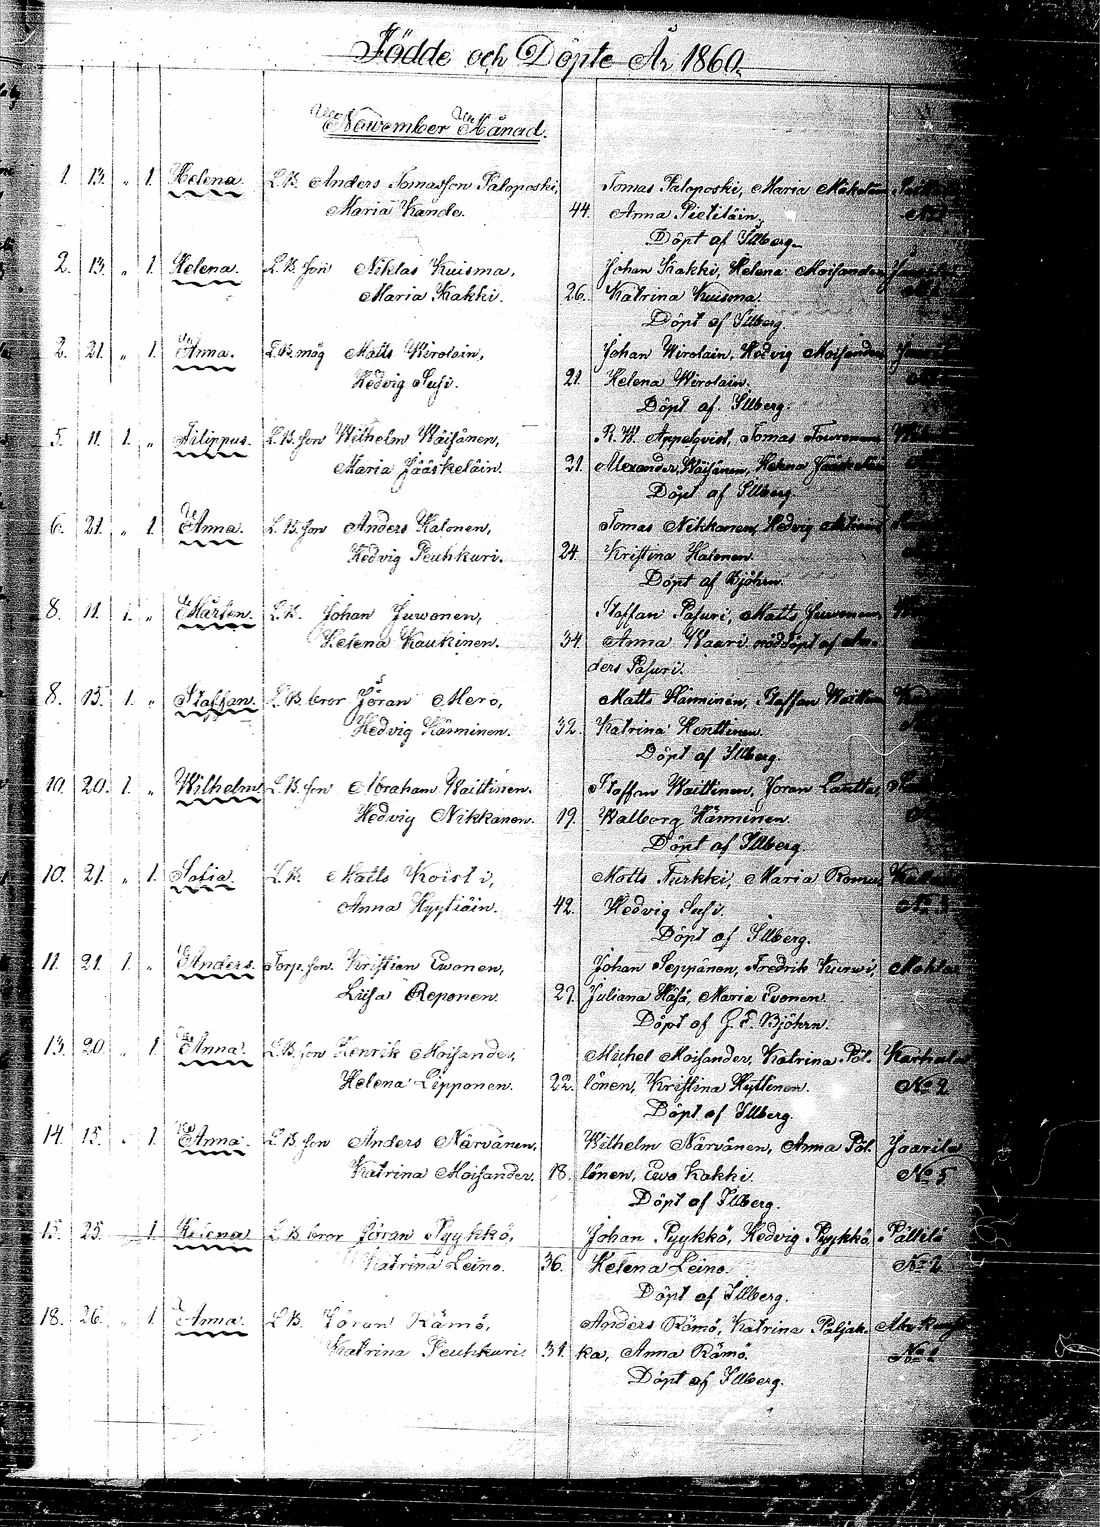 Födde och Döpte År 1860.
November Månad.
1. 13. " 1. Helena. L.B. Anders Tomasson Paloposki, Tomas Paloposki, Maria
Maria Kande. 44. Anna Pietiläin.
Döpt af Illberg.
2. 13. " 1. Helena. L.B. son Niklas Kuisma, Johan Kakki, Helena Moisander,
Maria Kakki. 26. Katrina Kuisma.
Döpt af Illberg.
2. 21. " 1. Anna. L.B. måg Matts Wirolain, Johan Wirolain, Hedvig Moisander
Hedvig Susi. 21. Helena Wirolain.
Döpt af Illberg.
5. 11. 1. " Filippus. L.B. son Wilhelm Wäisänen, R. W. Appelqvist, Tomas
Maria Jääskeläin. 21. Alexander Wäisänen, Helena
Döpt af Illberg.
6. 21. " 1. Anna. L.B. son Anders Halonen, Tomas Nikkanen, Hedvig
Hedvig Peuhkuri. 24. Kristina Halonen.
Döpt af Björn.
8. 11. 1. " Mårten. L.B. Johan Juwonen, Staffan Pasuri, Matts Juwonen,
Helena Kaukinen. 34. Anna Waari. nöddöpt af An-
ders Pasuri.
8. 15. 1. " Staffan. L.B. bror Jöran Mero, Matts Hänninen, Staffan
Hedvig Hänninen. 32. Katrina Henttinen.
Döpt af Illberg.
10. 20. 1. " Wilhelm L.B. son Abraham Waittinen. Staffan Waittinen, Jöran
Hedvig Nikkanen. 19. Walborg Hänninen.
Döpt af Illberg.
10. 21. " 1. Sofia. L.B. Matts Koisti, Matts Turkki, Maria
Anna Hyytiäin. 42. Hedvig Susi. No 3
Döpt af Illberg.
11. 21. 1. " Anders. Torp. son. Kristian Ewonen, Johan Seppänen, Fredrik Kurwi,
Liisa Reponen. 27. Juliana Häsä, Maria Evonen.
Döpt af G. F. Björn.
13. 20. " 1. Anna. L.B. son Henrik Moisander, Michel Moisander, Katrina Pöl-
Helena Lipponen. 22. lönen, Kristina Hyttinen. No 2
Döpt af Illberg.
14. 15. " 1. Anna. L.B. son Anders Närvänen, Wilhelm Närvänen, Anna Pöl- Jaarila
Katrina Moisander. 18. lönen, Ewa Kakki. No 5
Döpt af Illberg.
15. 25. 1. Helena L.B. bror Jöran Pyykkö, Johan Pyykkö, Hedvig Pyykkö, Pättilä
Katrina Leino. 36. Helena Leino. No 2
Döpt af Illberg.
18. 26. " 1. Anna. L.B. Jöran Rämö, Anders Rämö, Katrina Paljak-
Katrina Peuhkuri. 31. ka, Anna Rämö. No 1
Döpt af Illberg.